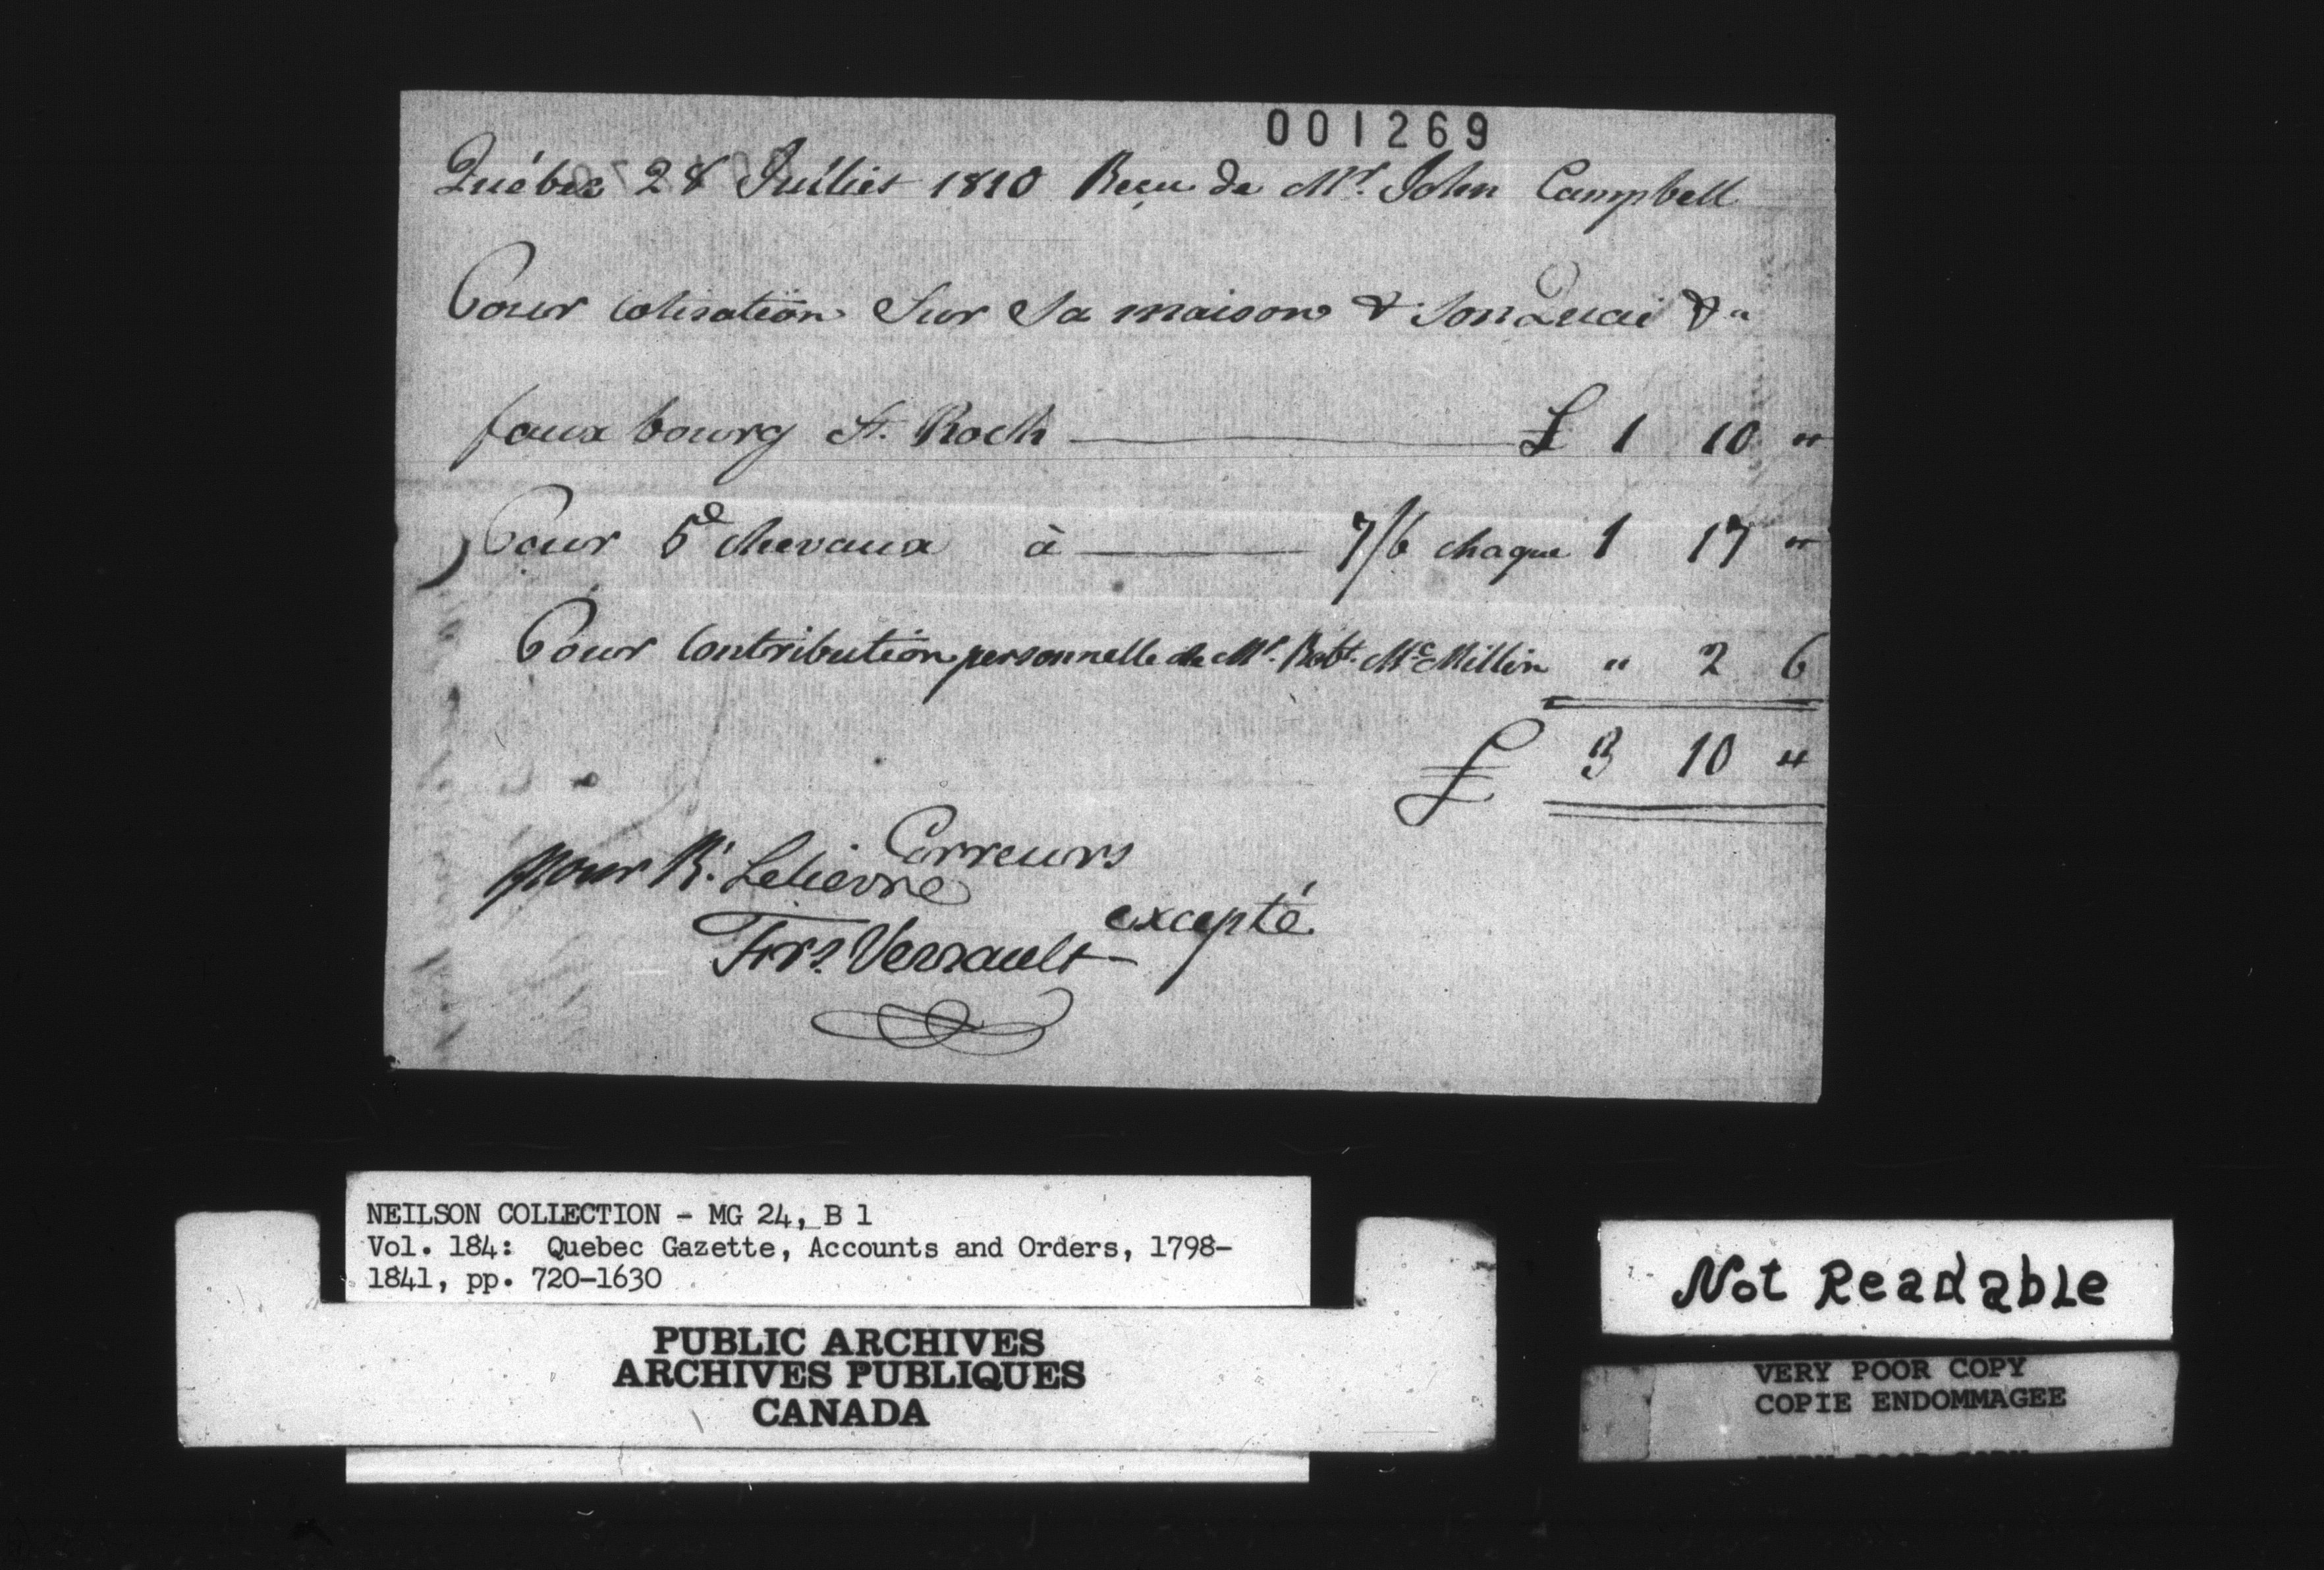 001269
Québec 28 Juillet 1810 Reçu de Mr. John Campbell
Pour cotisation Sur Sa maison & son Quai &a
faux bourg St. Roch £ 1 10 "
Pour 5e chevaux à 7/6 chaque 1 17 "
Pour Contribution personnelle de Mr. Robt. McMillin " 2 6
£ 3 10 "
Erreurs
pour R. Lelievre
excepté
Frs. Verrault
NEILSON COLLECTION - MG 24, B 1
Vol. 184: Quebec Gazette, Accounts and Orders, 1798-
1841, pp. 720-1630
PUBLIC ARCHIVES
ARCHIVES PUBLIQUES
CANADA
Not Readable
VERY POOR COPY
COPIE ENDOMMAGEE